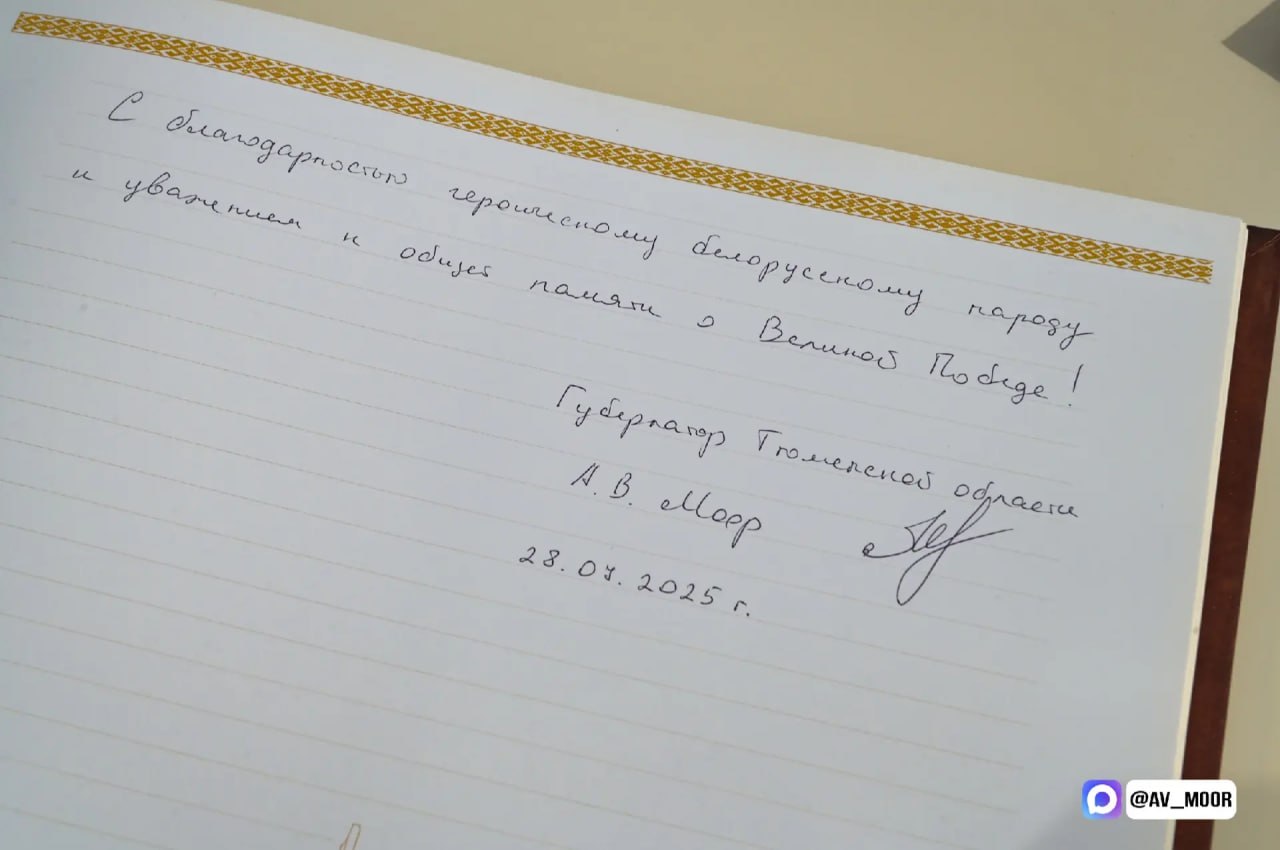 С благодарностью героическому белорусскому народу
и уважением к общей памяти о Великой Победе!
Губернатор Тюменской области
А. В. Моор
28.07.2025 г.
@AV_MOOR